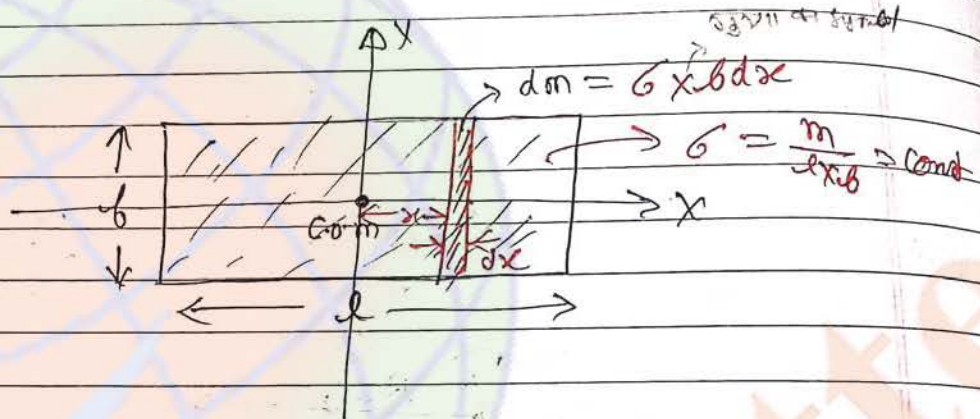 Y
dm = σ × b dx
σ = m / l×b = const
b
C.O.M
x
X
dx
l